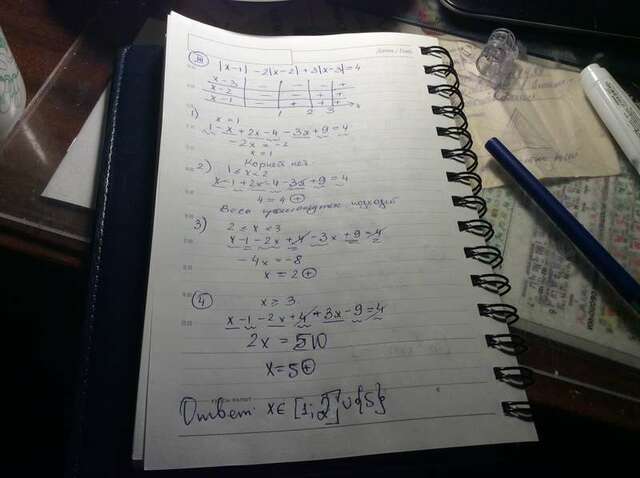 |x-1| - 2|x-2| + 3|x-3| = 4
x-3 - - - +
x-2 - - + +
x-1 - + + +
1 2 3 x
1)
1-x+2x-4-3x+9=4
-2x=-2
x=1
Корней нет.
2) 1≤x<2
x-1+2x-4-3x+9=4
4=4 ⊕
Весь промежуток подходит
3) 2≤x<3
x-1-2x+4-3x+9=4
-4x=-8
x=2 ⊕
④ x≥3
x-1-2x+4+3x-9=4
2x=10
x=5 ⊕
Ответ: x∈[1;2]∪{5}